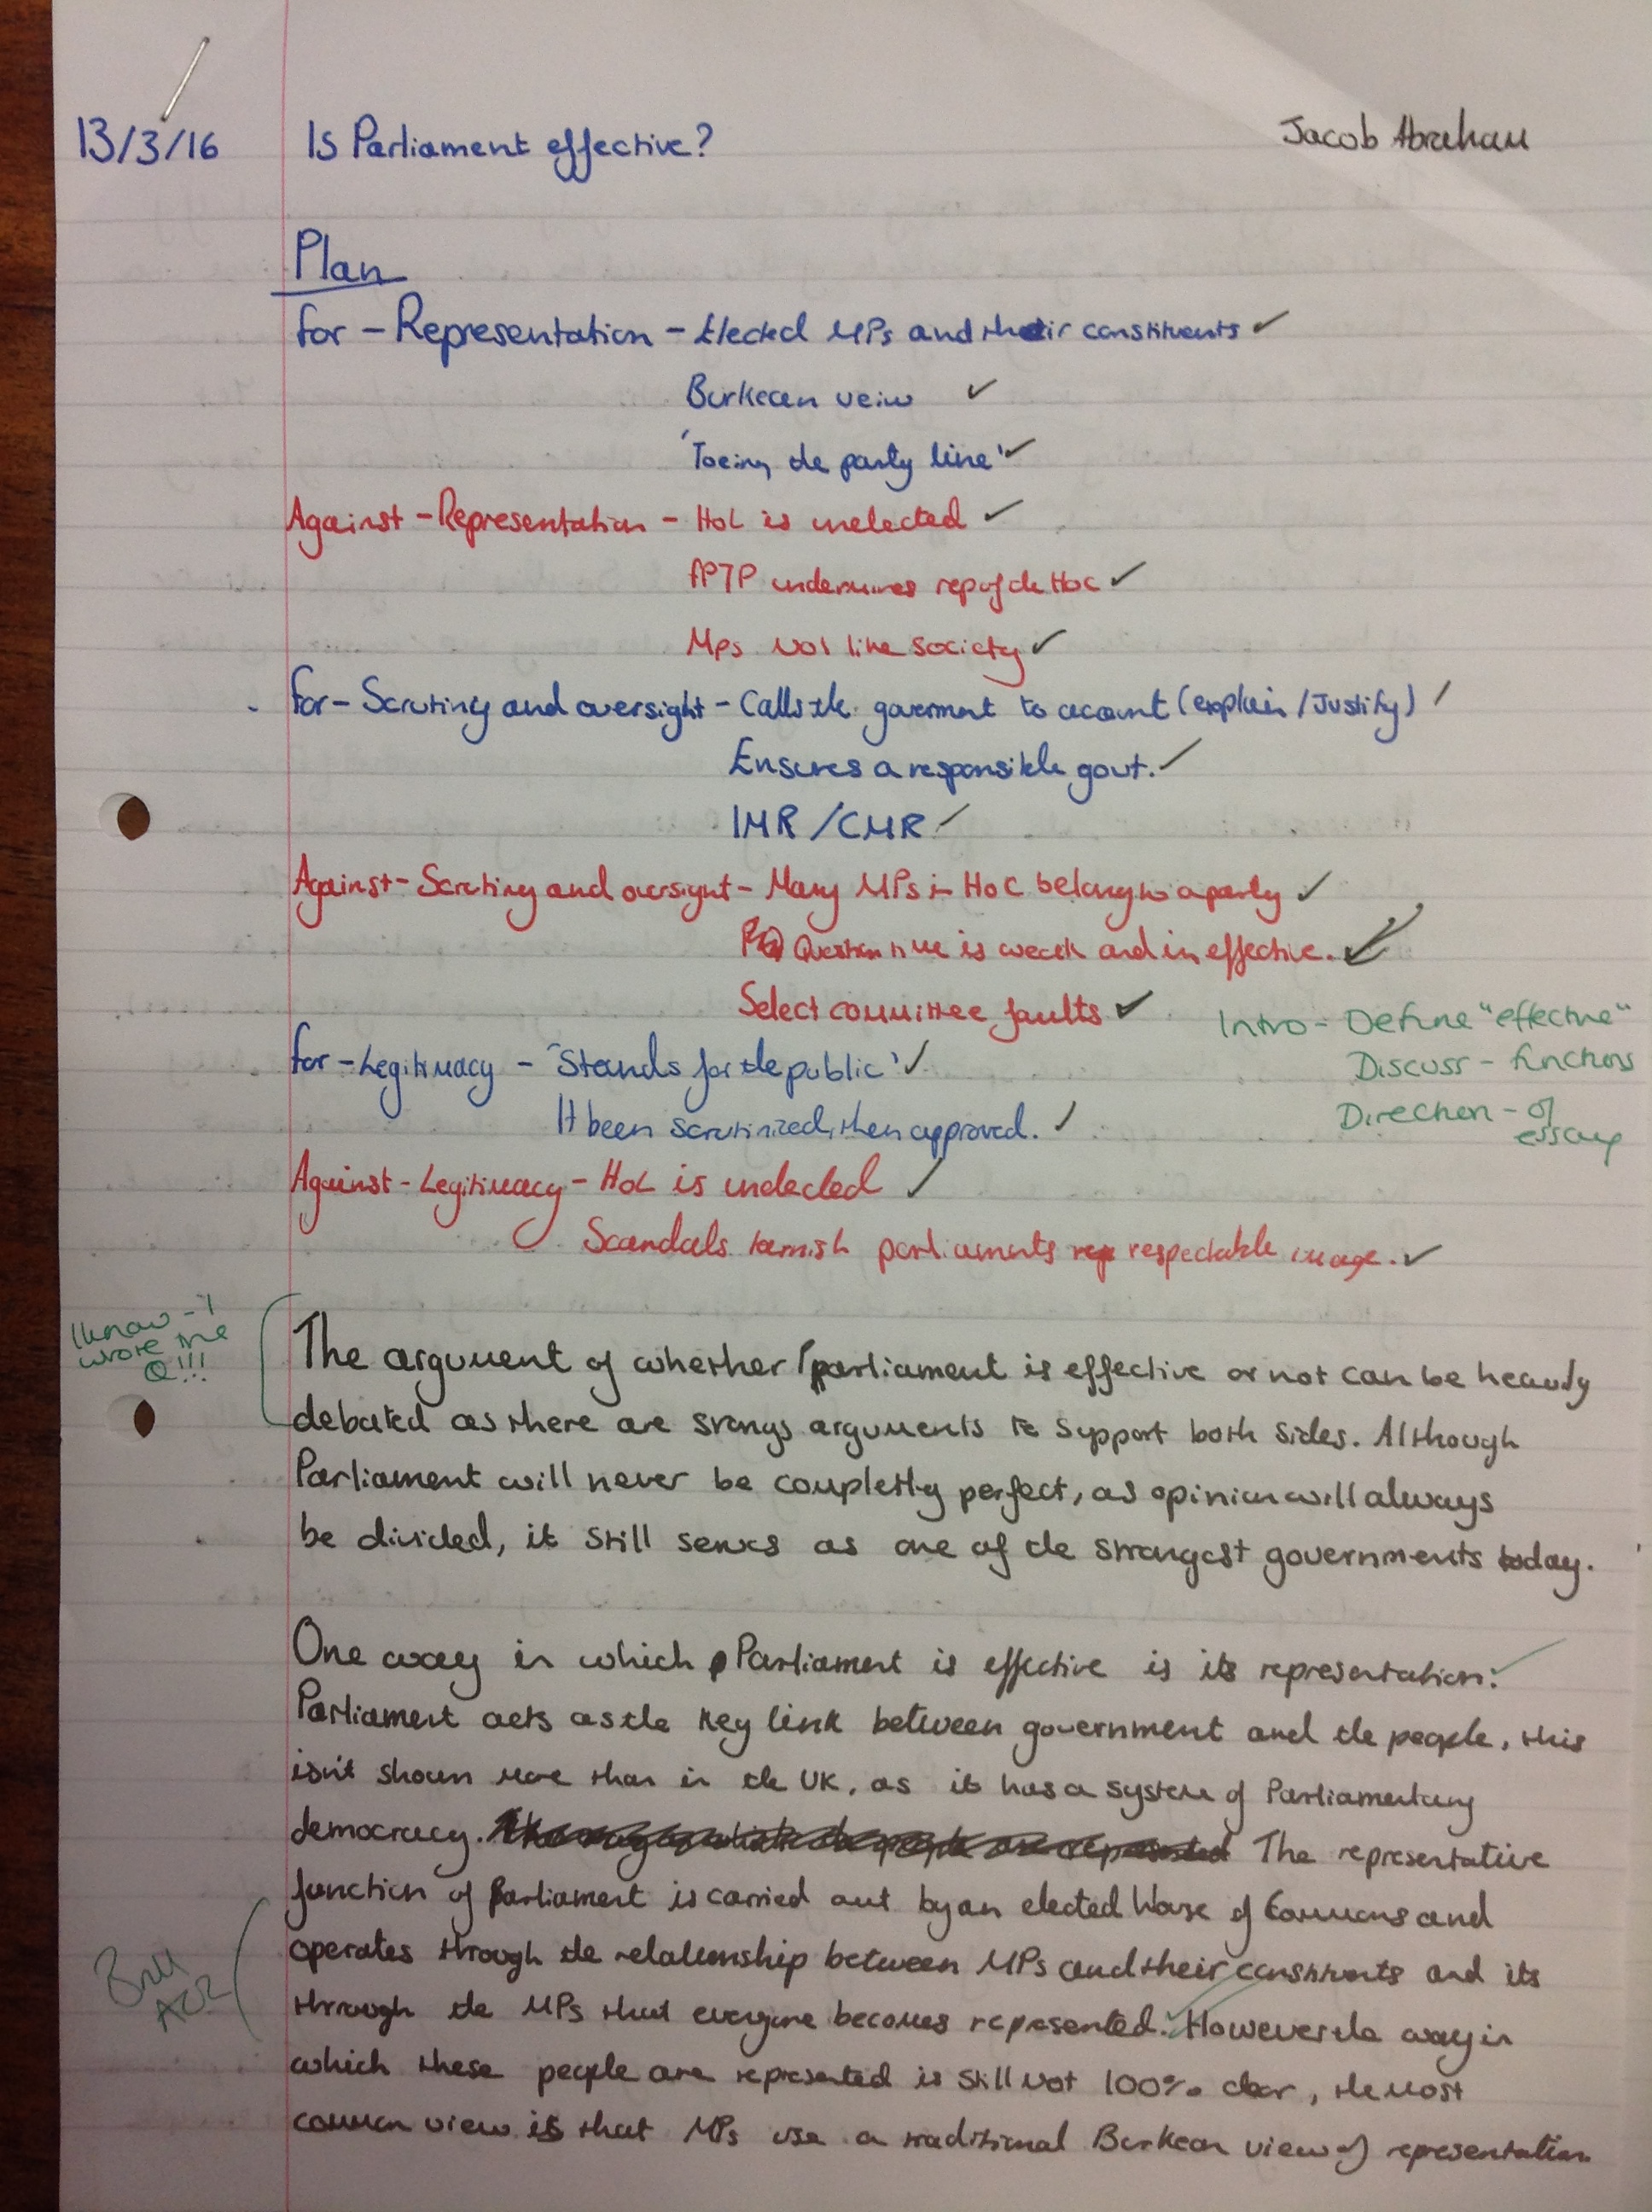 13/3/16 Is Parliament effective? Jacob Abraham
Plan
For - Representation - Elected MPs and their constituents ✓
Burkean veiw ✓
'Toeing the party line' ✓
Against - Representation - HoL is unelected ✓
FPTP undermines rep of the HoC ✓
Mps not like society ✓
For - Scrutiny and oversight - Calls the goverment to account (explain / Justify) ✓
Ensures a responsible govt. ✓
IMR / CMR ✓
Against - Scrutiny and oversight - Many MPs in HoC belong to a party ✓
Question time is weak and ineffective. ✓
Select committee faults ✓
Intro - Define "effective"
Discuss - functions
Direction - of
essay
For - Legitimacy - 'Stands for the public' ✓
It been scrutinized, then approved. ✓
Against - Legitimacy - HoL is unelected ✓
Scandals tarnish parliaments respectable image. ✓
I know - I
wrote the
Q!!!
The argument of whether parliament is effective or not can be heavily
debated as there are strongs arguments to support both sides. Although
Parliament will never be completly perfect, as opinion will always
be divided, it still serves as one of the strongest governments today.
One way in which Parliament is effective is its representation.
Parliament acts as the key link between government and the people, this
isn't shown more than in the UK, as it has a system of Parliamentary
democracy. The representative
function of Parliament is carried out by an elected House of Commons and
operates through the relationship between MPs and their constituents and its
through the MPs that everyone becomes represented. However the way in
which these people are represented is still not 100% clear, the most
common view is that MPs use a traditional Burkean view of representation
AO2